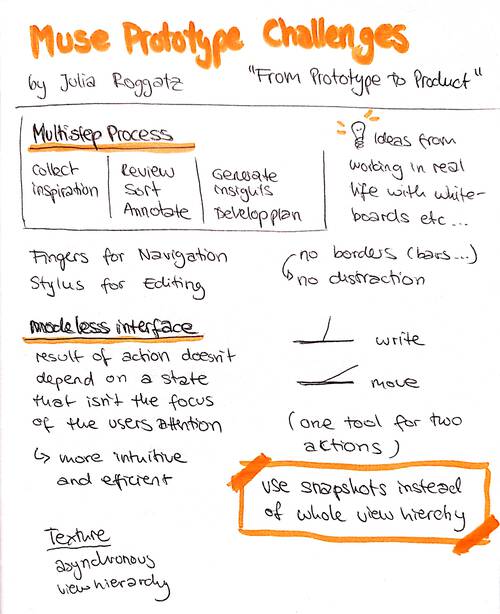 Muse Prototype Challenges
by Julia Roggatz "From Prototype to Product"
Multistep Process
Collect
inspiration
Review
Sort
Annotate
Generate
Insights
Develop plan
Ideas from
working in real
life with white-
boards etc...
Fingers for Navigation
Stylus for Editing
no borders (bars...)
no distraction
modeless interface
result of action doesn't
depend on a state
that isn't the focus
of the users attention
↳ more intuitive
and efficient
write
move
(one tool for two
actions)
use snapshots instead
of whole view hierchy
Texture
asynchronous
view hierarchy